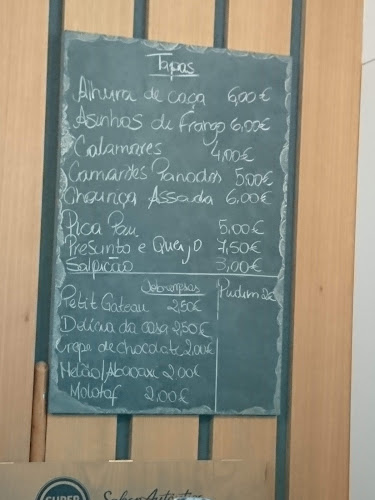 Tapas
Alhura de caça 6,00€
Asinhas de Frango 6,00€
Calamares 4,00€
Camarões Panados 5,00€
Chouriça Assada 6,00€
Pica Pau 5,00€
Presunto e Queijo 7,50€
Salpicão 3,00€
Sobremesas
Petit Gateau 2,50€
Delicia da casa 2,50€
Crepe de chocolate 2,00€
Melão/Abacaxi 2,00€
Molotof 2,00€
Pudim 2€
SUPER